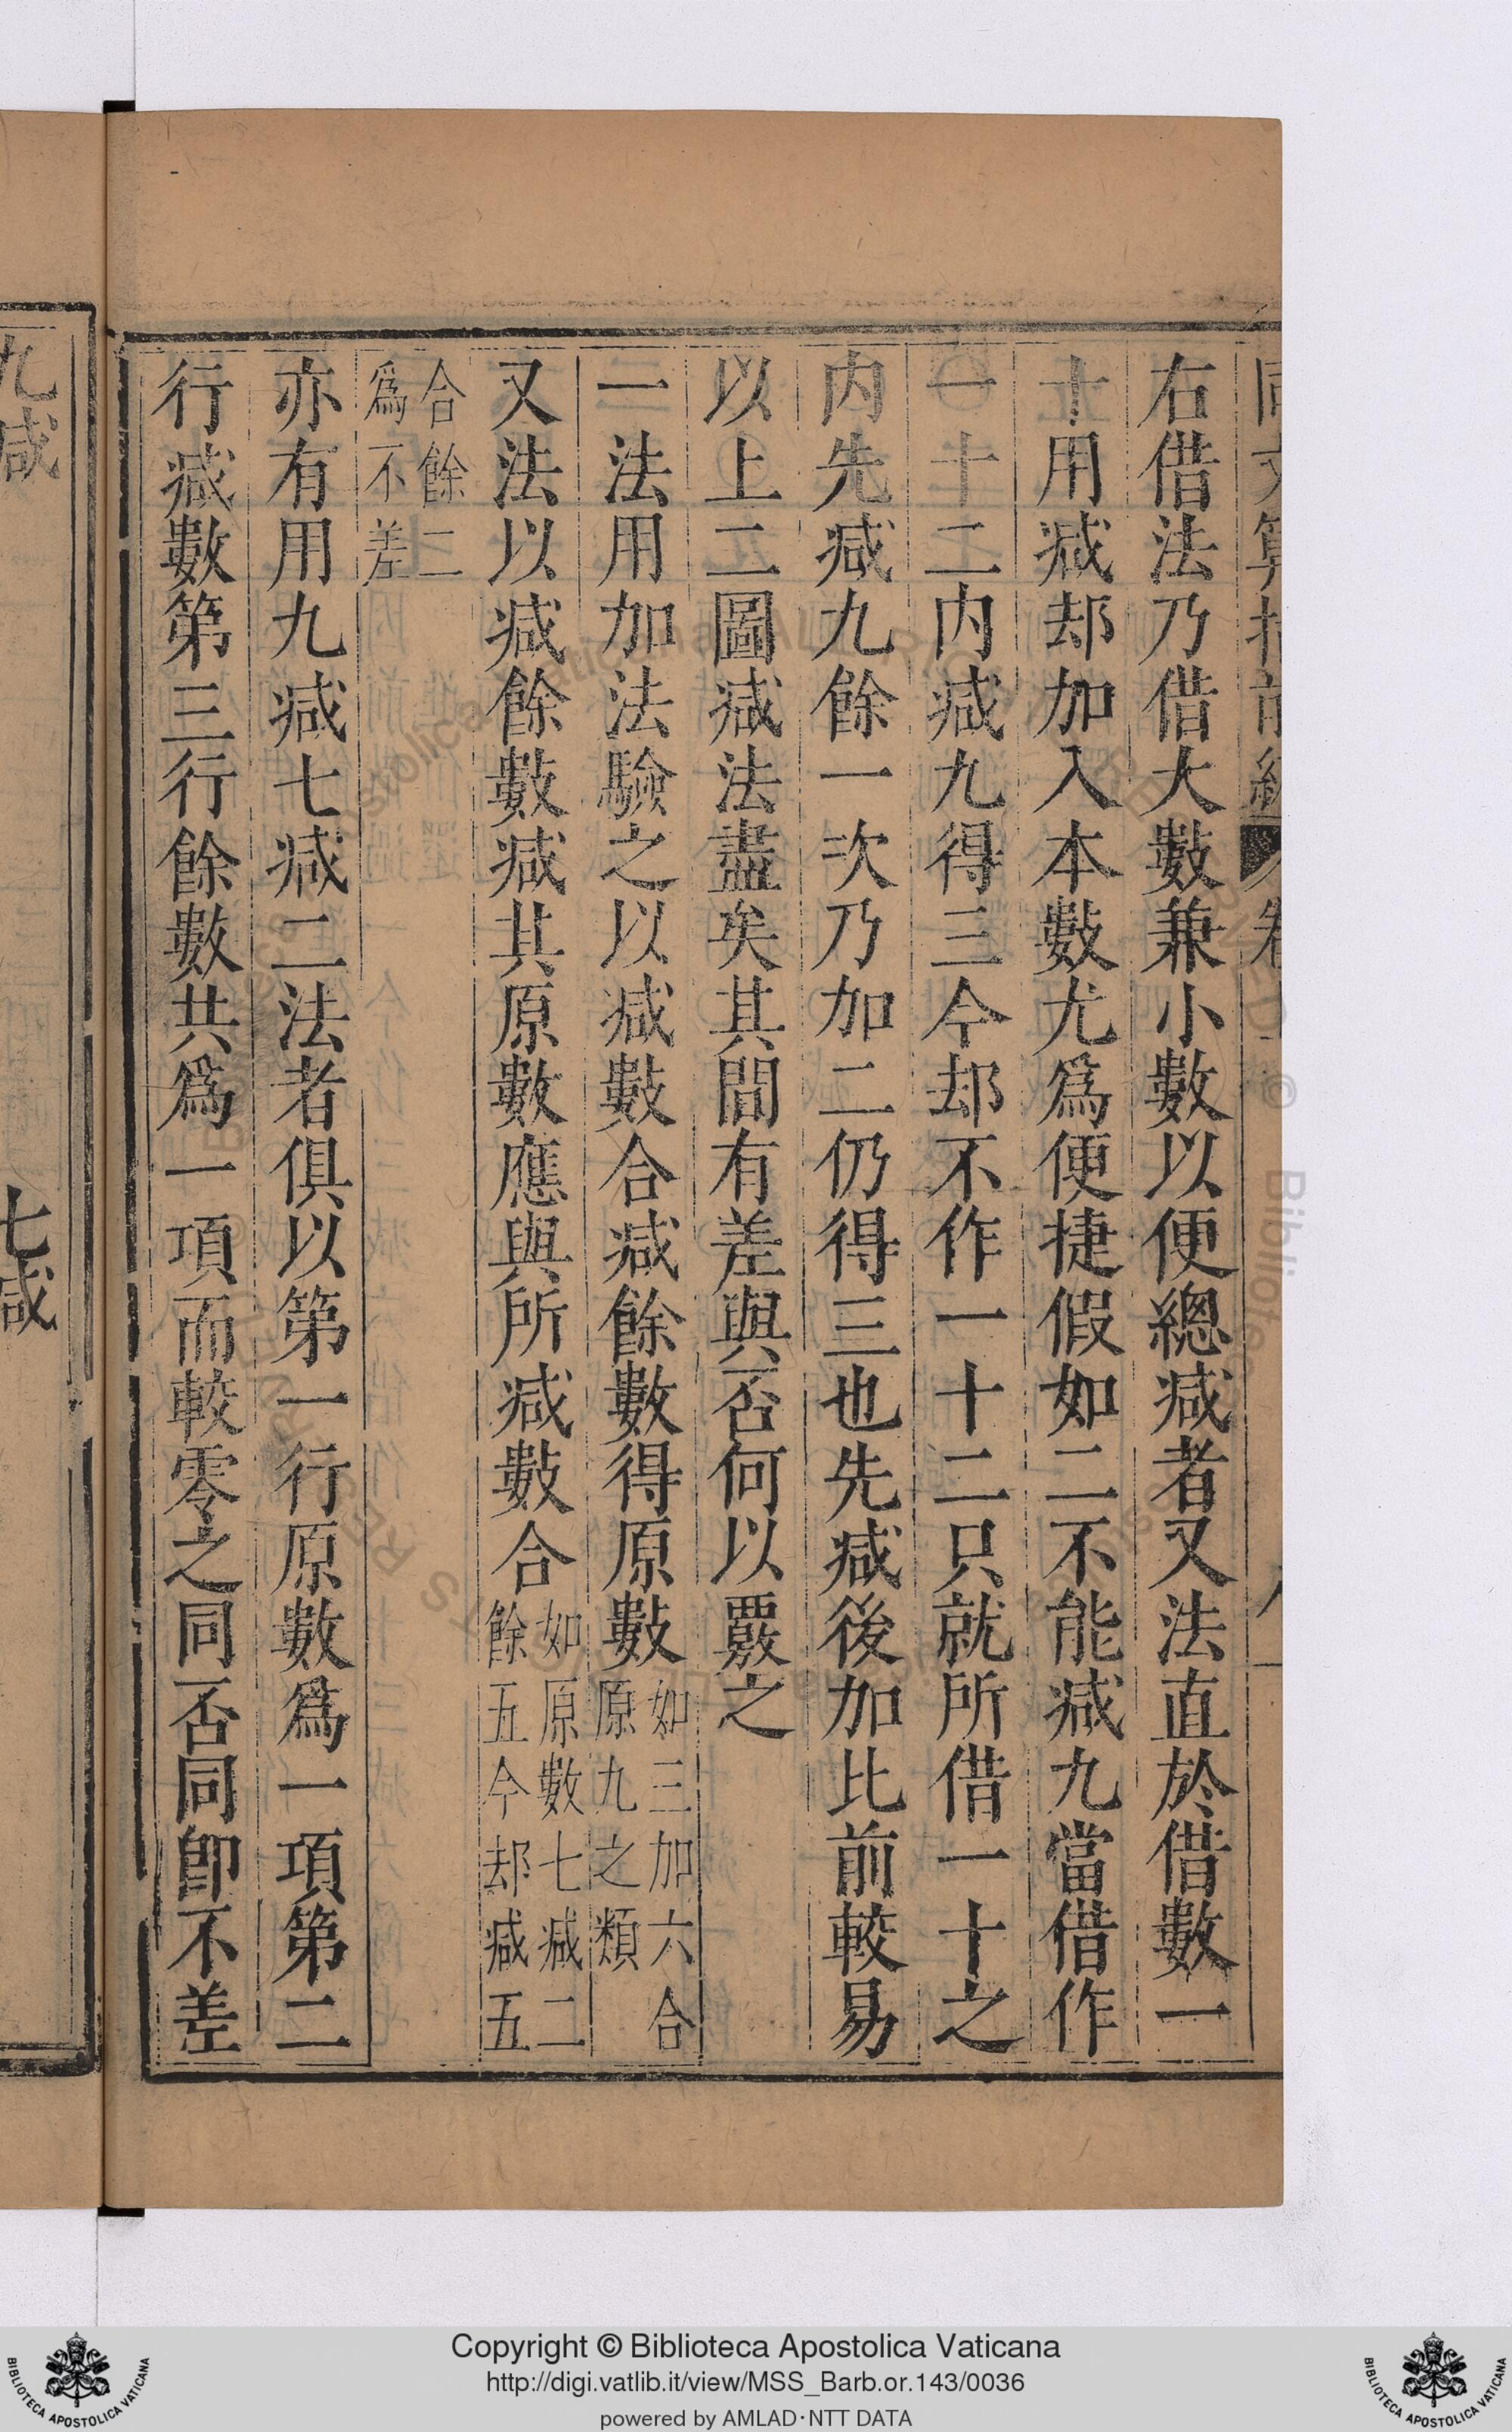 同文算指前編 卷
右借法乃借大數兼小數以便總減者又法直於借數一
十用減却加入本數尤爲便捷假如二不能減九當借作
一十二内減九得三今却不作一十二只就所借一十之
内先減九餘一次乃加二仍得三也先減後加比前較易
以上二圖減法盡矣其間有差與否何以覈之
一法用加法驗之以減數合減餘數得原數如三加六合
原九之類
又法以減餘數減其原數應與所減數合如原數七減二
餘五今却減五
合餘二
爲不差
亦有用九減七減二法者俱以第一行原數爲一項第二
行減數第三行餘數共爲一項而較零之同否同卽不差
九減 七減
Copyright © Biblioteca Apostolica Vaticana
http://digi.vatlib.it/view/MSS_Barb.or.143/0036
powered by AMLAD·NTT DATA
BIBLIOTECA APOSTOLICA VATICANA
BIBLIOTECA APOSTOLICA VATICANA